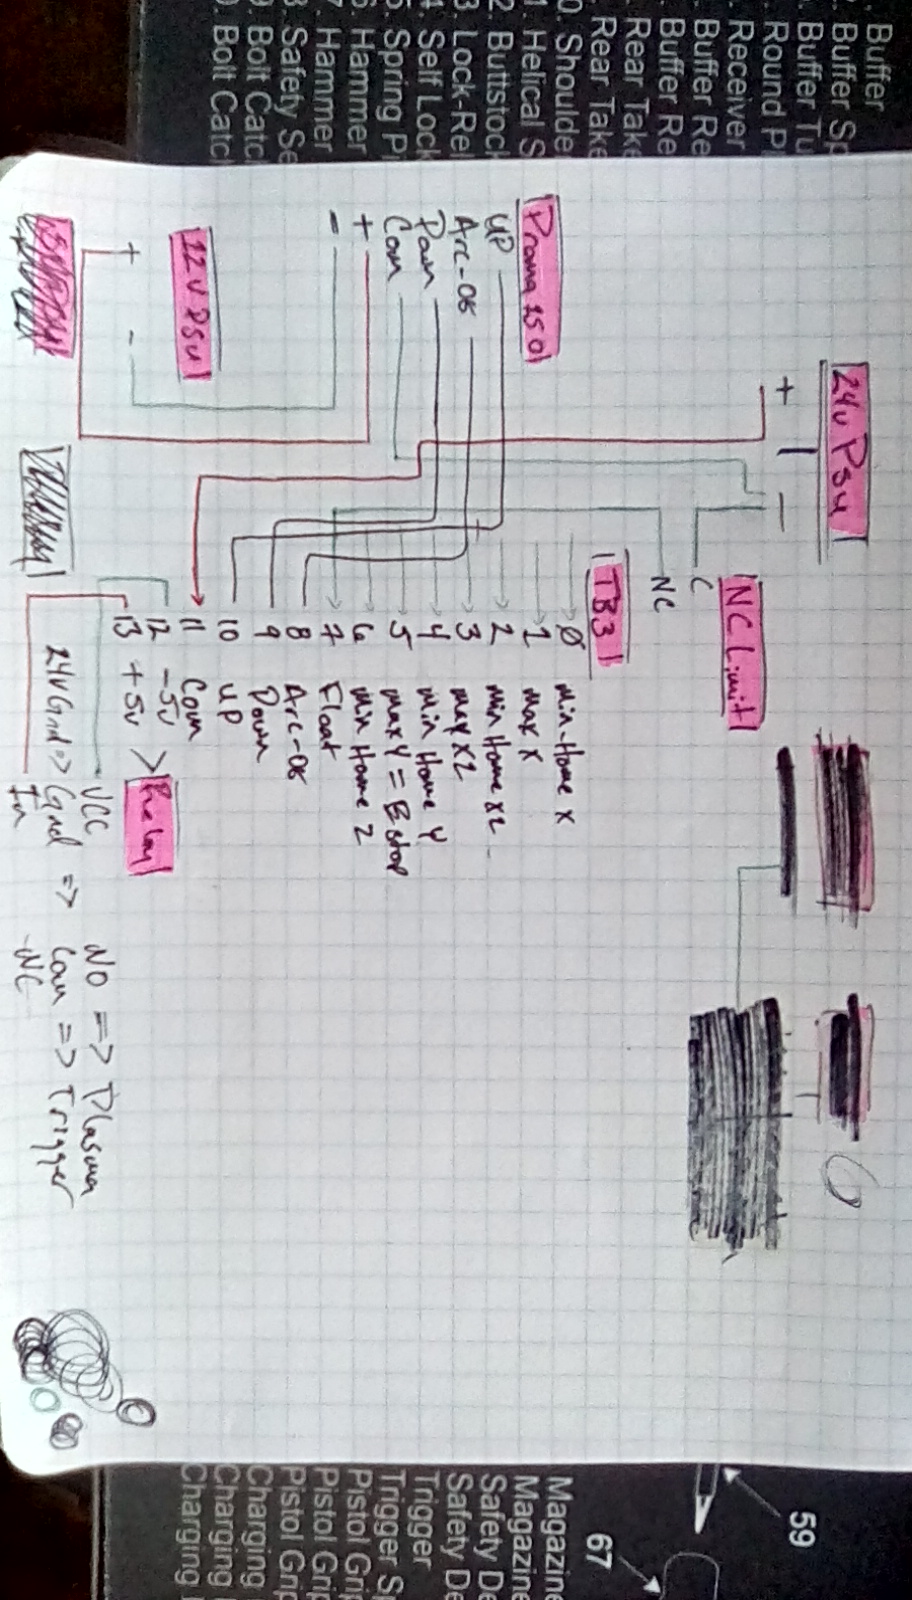 24v PSU
+ | -
NC Limit
C
NC
TB3
Ø Min-Home X
1 Max X
2 Min Home X2
3 Max X2
4 Min Home Y
5 Max Y = Estop
6 Min Home Z
7 Float
8 Arc-OK
9 Down
10 UP
11 Com
12 -5v
13 +5v
> Relay
VCC
24v Gnd => Gnd =>
In
NO => Plasma
Com => Trigger
-NC
Proma 150
UP
Arc-OK
Down
Com
+
-
12v PSU
+ -
Buffer
Buffer Sp
Buffer Tu
Round P
Receiver
Buffer Re
Buffer Re
Rear Take
Rear Take
0. Shoulde
1. Helical S
2. Buttstock
3. Lock-Rel
4. Self Lock
5. Spring Pi
6. Hammer
7. Hammer
8. Safety Se
9. Bolt Catc
0. Bolt Catc
59
67
Magazine
Magazine
Safety De
Safety De
Trigger
Trigger Sp
Pistol Grip
Pistol Grip
Pistol Grip
Charging
Charging
Charging